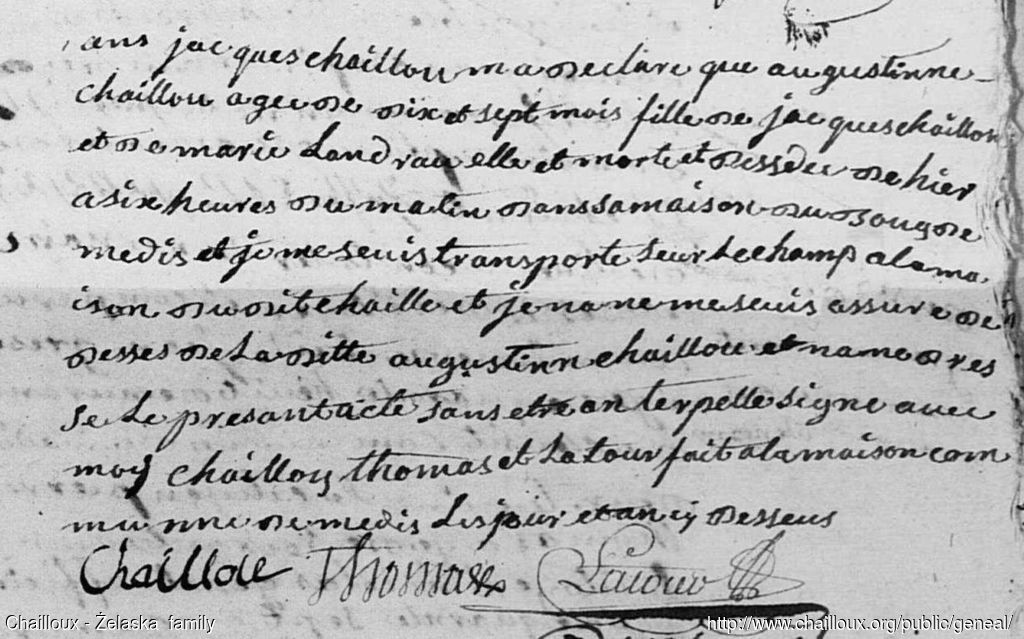 ans jacques chaillou ma declare que augustinne
chaillou agee de dix et sept mois fille de jacques chaillou
et de marie Landrau elle et morte et dessdee de hier
a six heures du matin dans sa maison du boug de
medis et je me seuis transporte seur Le champ a la ma
ison du dit chaille et je na ne me seuis assure de
desses de La ditte augustinn chaillou et name dres
se Le presant acte sans etre anterpelle signe avec
moy chaillou thomas et La tour fait a la maison com
munne de medis Les jour et an cy desseus
Chailloue Thomas Latour
Chailloux - Żelaska family
http://www.chailloux.org/public/geneal/